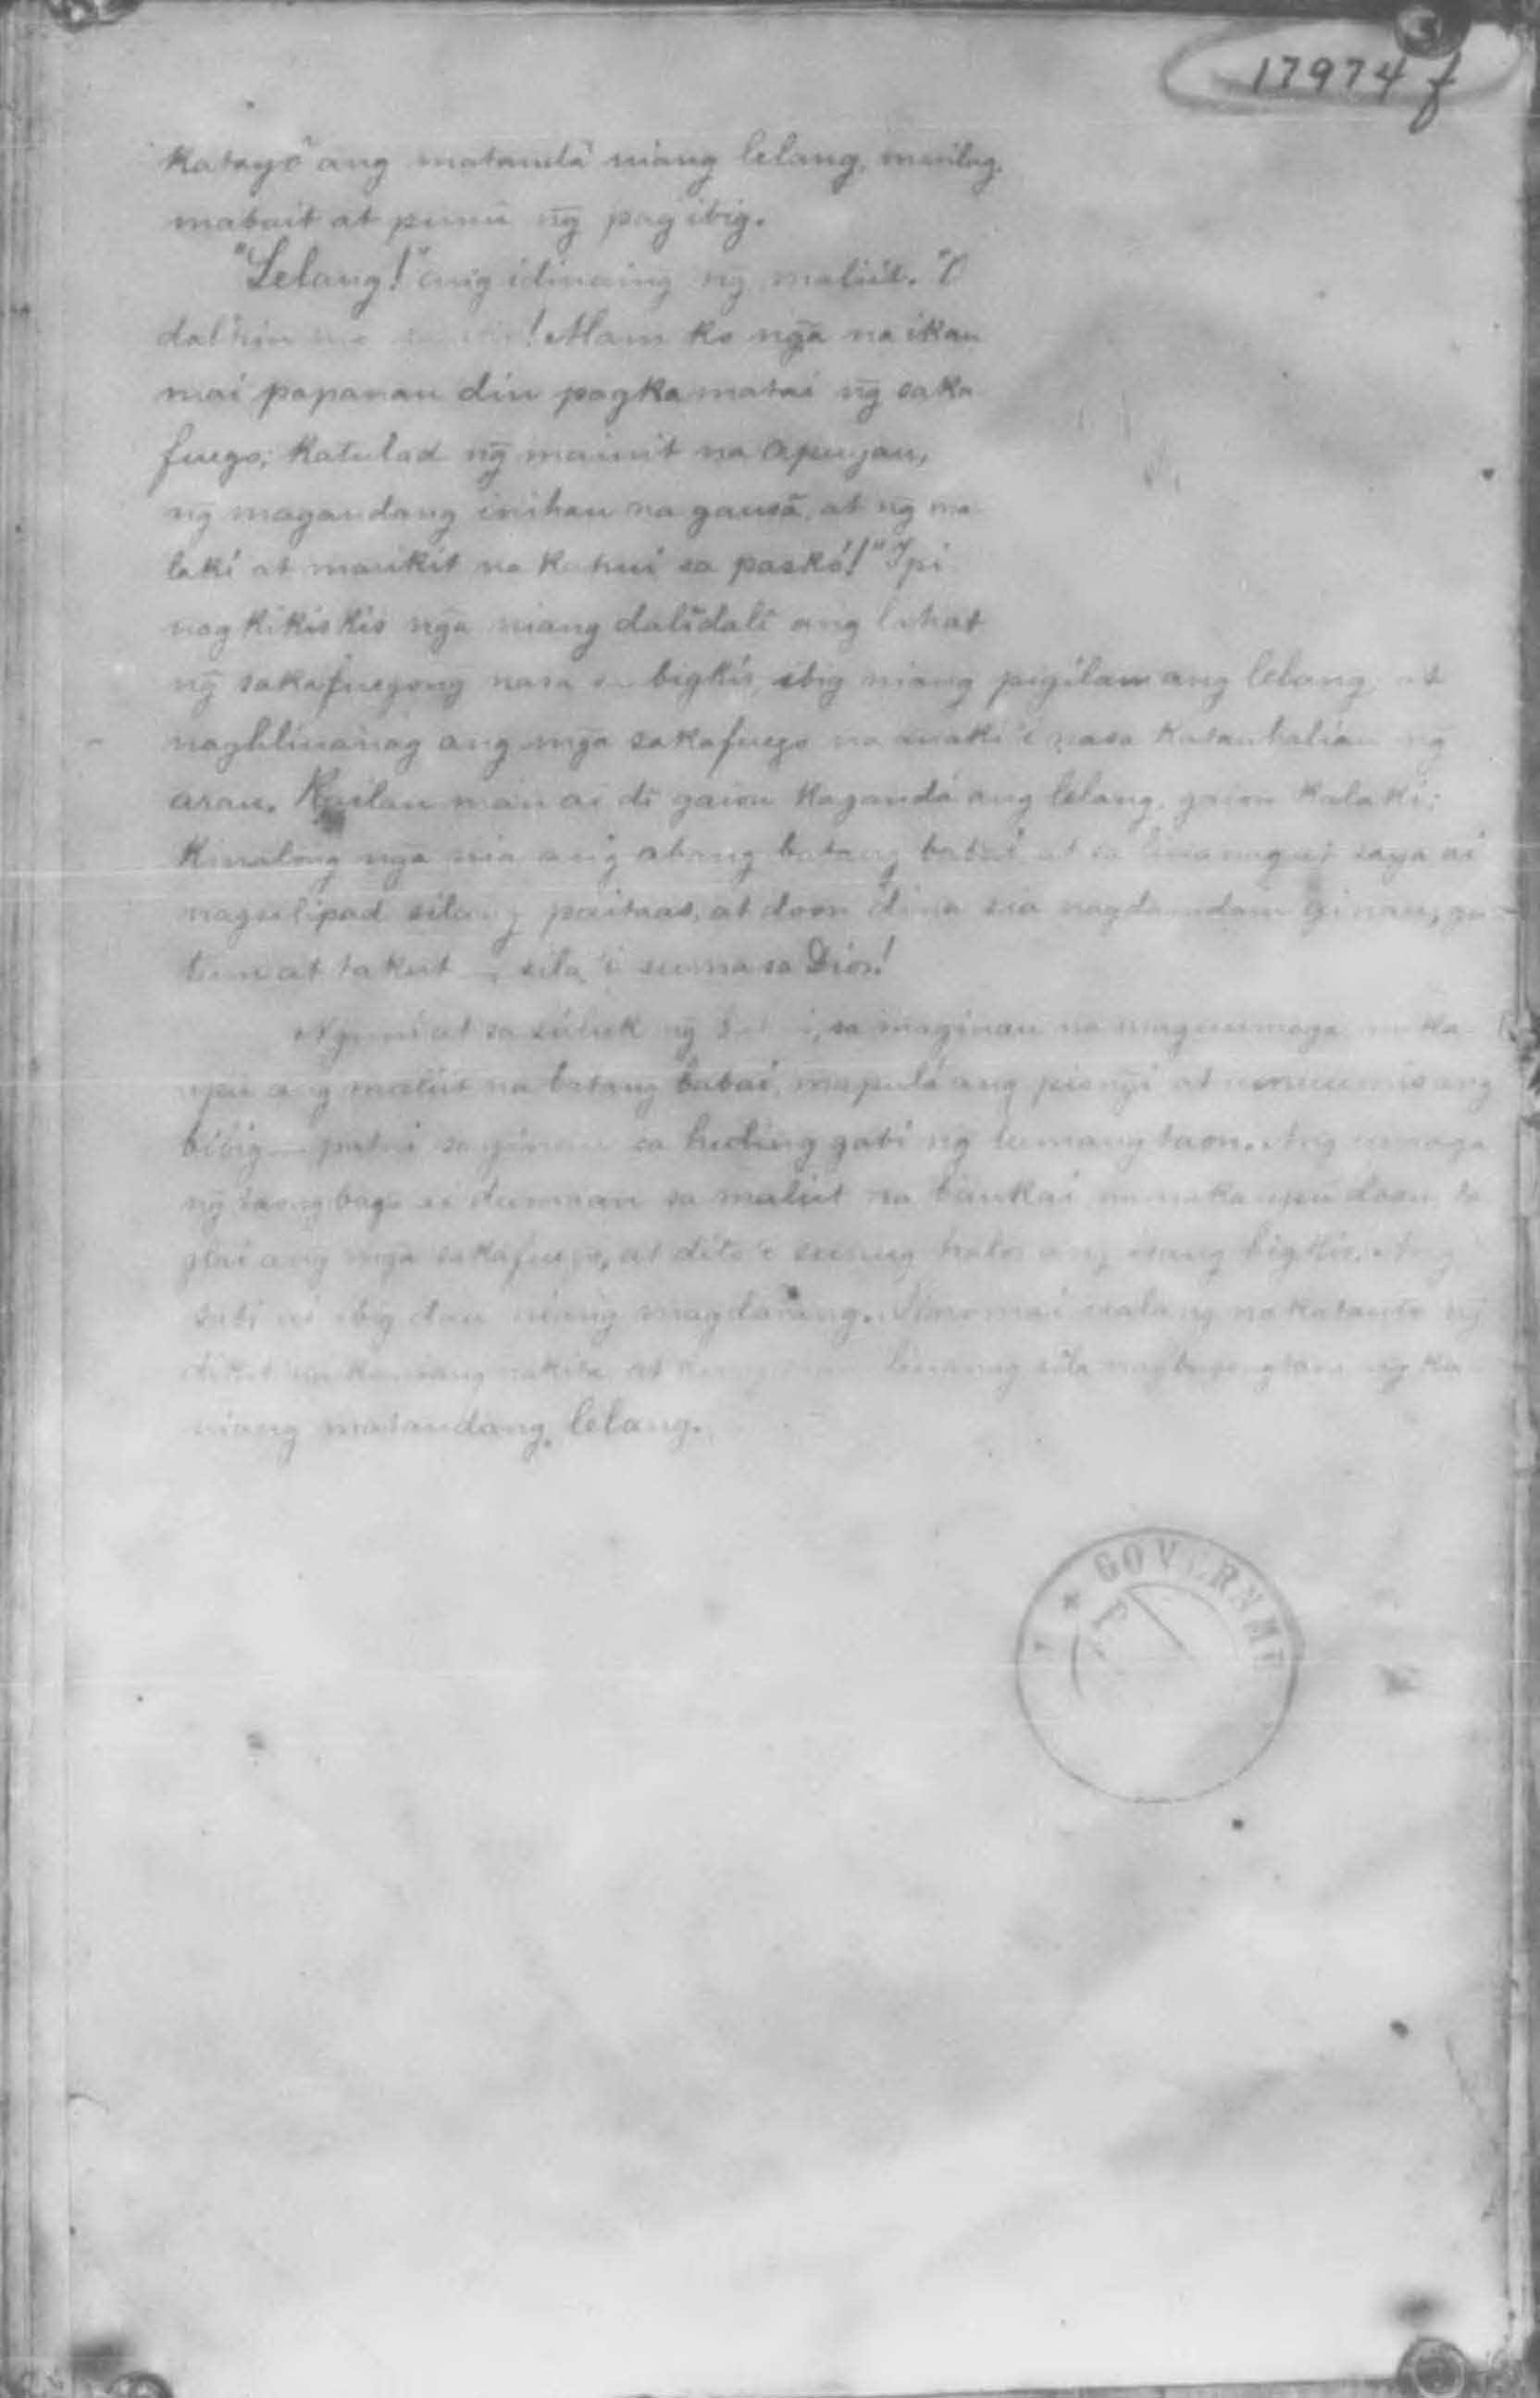 17974 f
katayô ang matandâ niang lelang, marilag,
mabait at punũ ng̃ pag ibig.
"Lelang!" ang idinaing ng̃ maliit. "O
dalhin mo ! Alam ko ng̃a na ikau
mai papanau din pagkamatai ng̃ saka
fuego; katulad ng̃ mainit na apuyan,
ng̃ magandang inihau na gansã, at ng̃ ma
laki at marikit na kahui sa paskó!" Ipi
nagkikiskis ng̃a niang dalîdalî ang lahat
ng̃ sakafuegong nasa sa bigkis, ibig niang pigilan ang lelang, at
naghlinanag ang mg̃a sakafuego na anaki'i nasa katanhalian ng̃
arau. Kailan man ai di gaion kagandá ang lelang, gaion kalaki;
kinalong ng̃a nia ang abang batang babai at sa linanag at saya ai
nagsilipad silang paitaas, at doon di na sia nagdamdam ginau, gu
tum at takut — sila'i suma sa Dios!
Ng̃uni at sa suluk ng̃ , sa maginau na maguumaga naka
upu ang maliit na batang babai, mapulá ang pisng̃i at ang
bibig — patai sa ginau sa huling gabi ng̃ lumang taon. Ang umaga
ng̃ taong bago ai dumaan sa maliit na bankai na nakaupu doon, ta
glai ang mg̃a sakafuego, at dito'i sunug halos ang isang bigkis. Ang
sabi ai ibig dau niang magdarang. Ng̃uni walang nakatanto ng̃
dikit na kaniang nakita at linanag sila ng̃ ka
niang matandang lelang.
GOVERNME